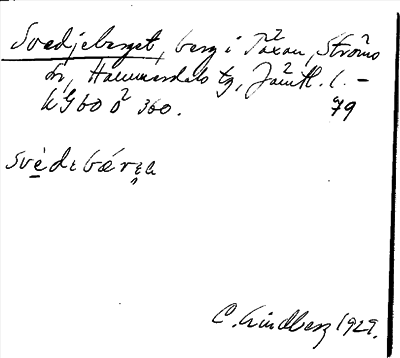 Svedjeberget, berg i Täxan, Ströms
sn, Hammerdals tg, Jämtl. l. –
KG60 ö² 360. 79
svèdɛbærɛa
C. Lindberg 1929.